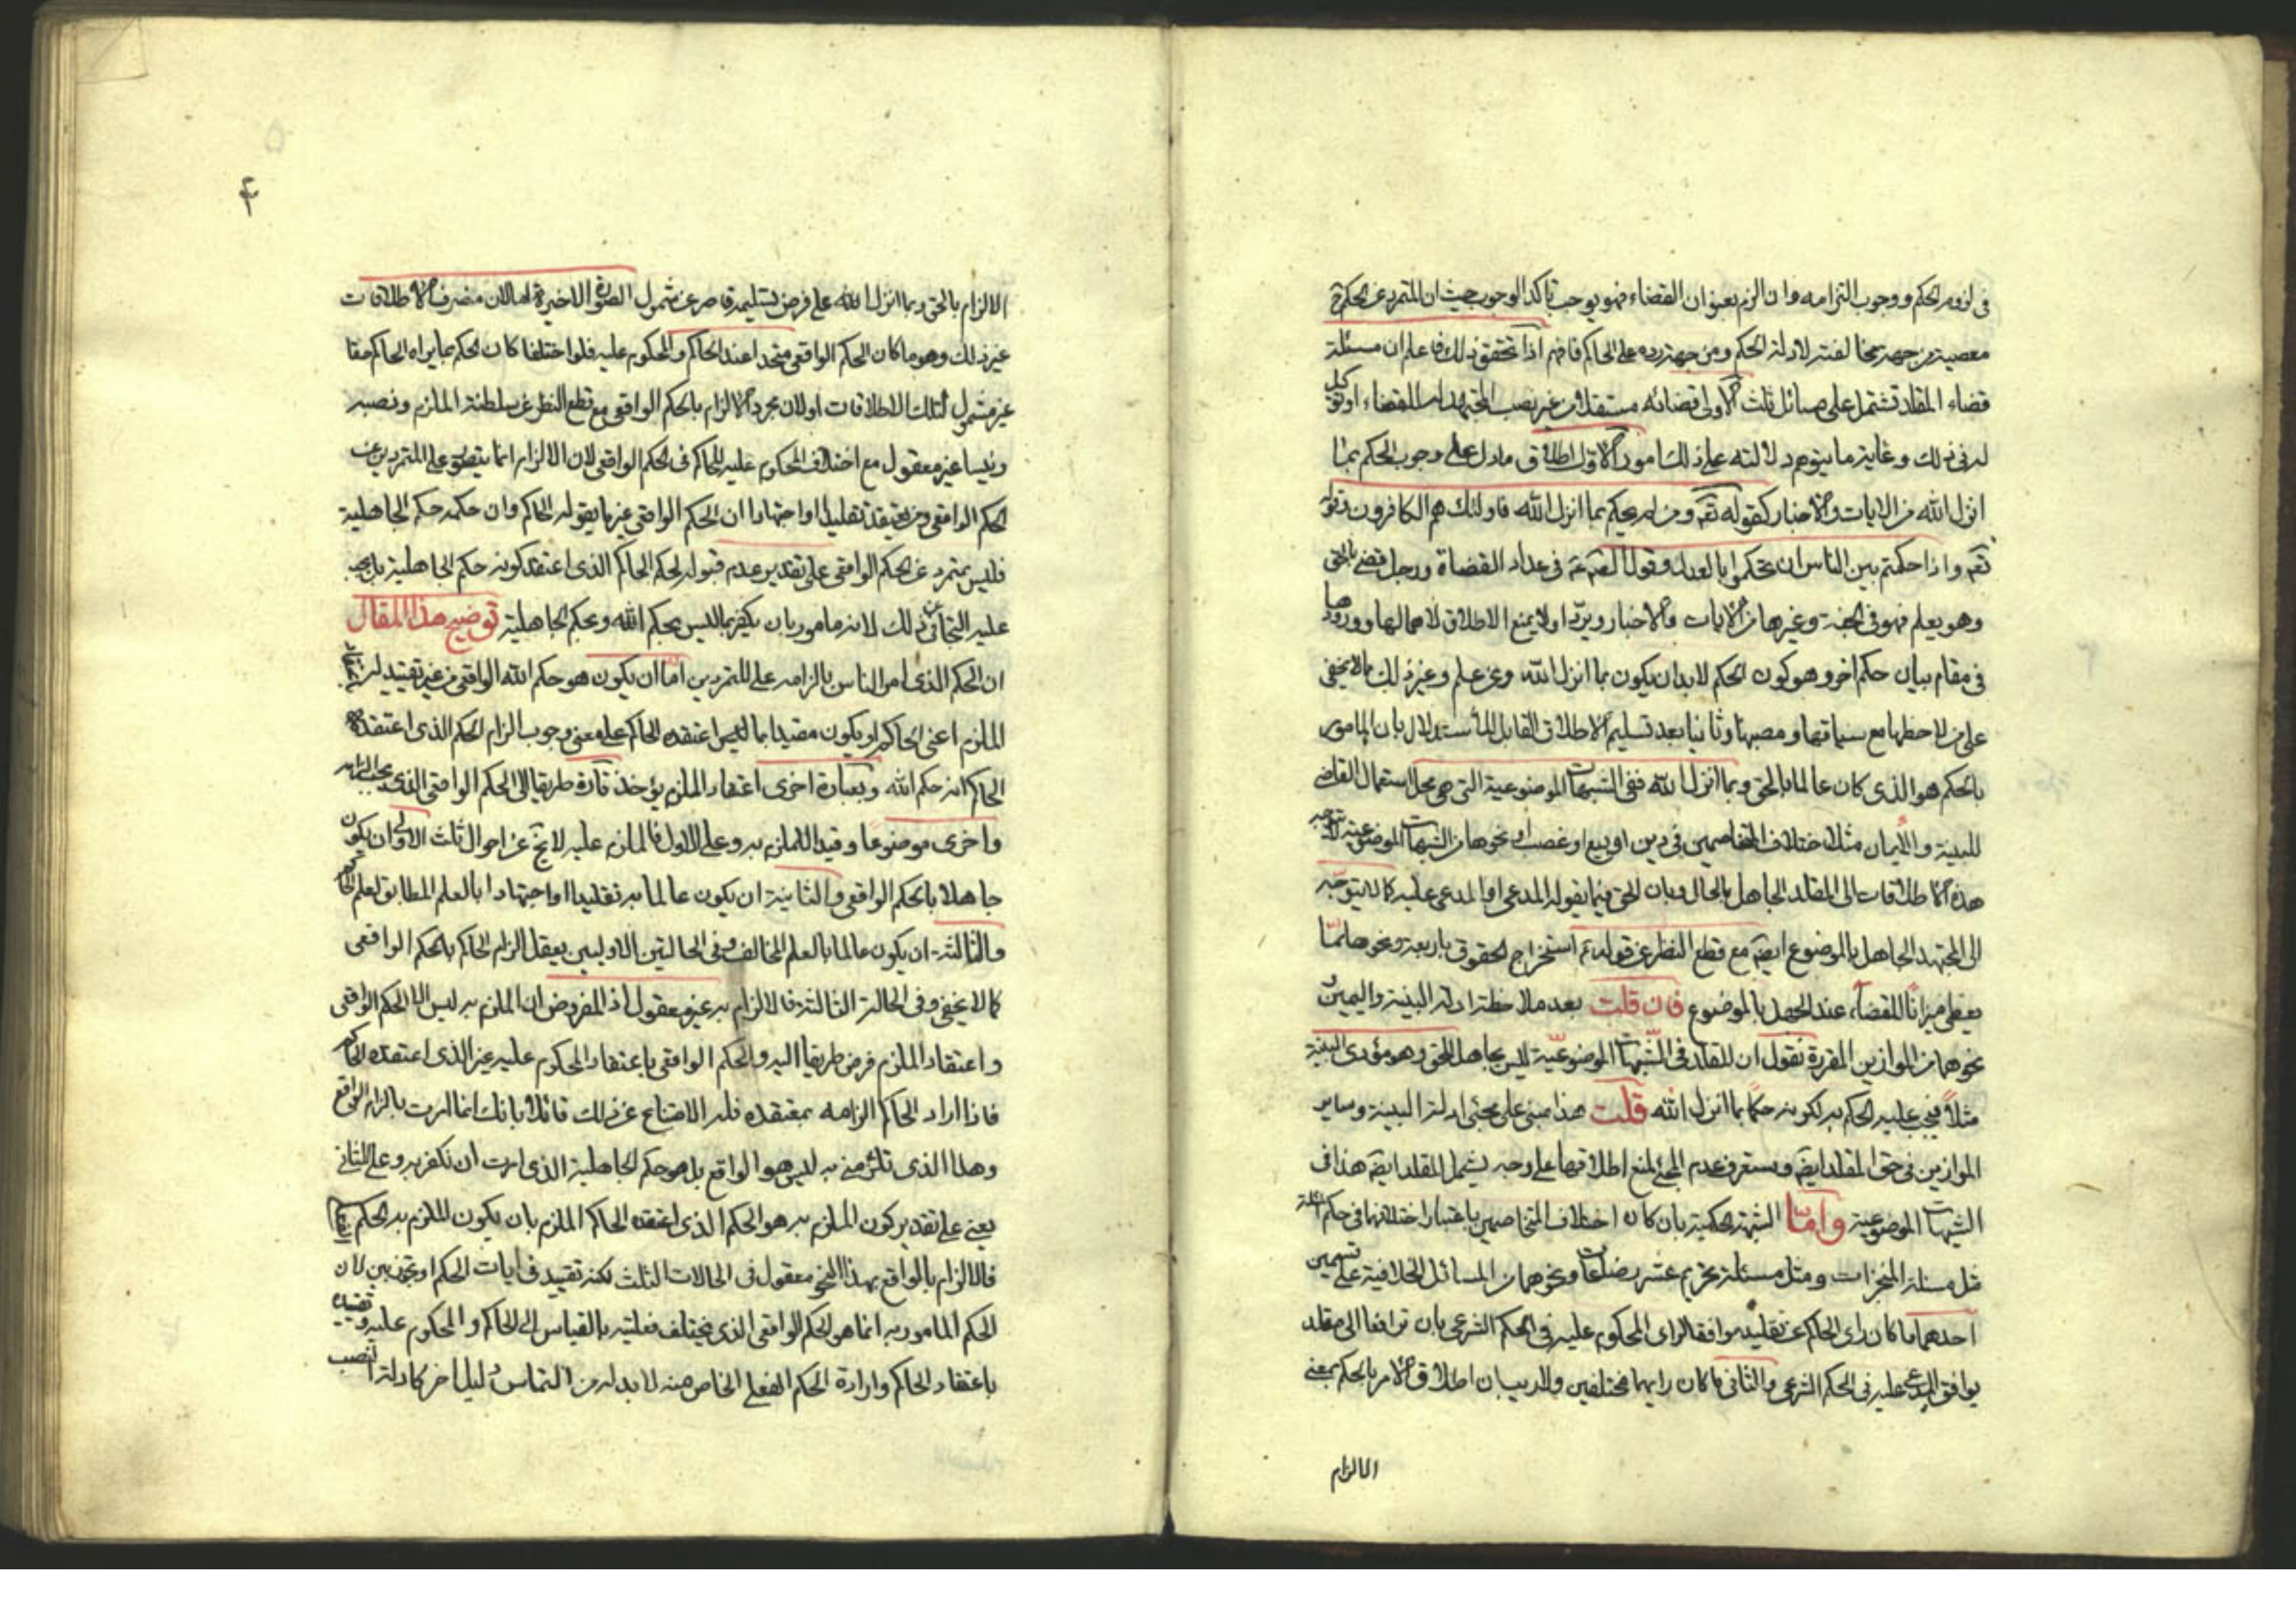 في لزوم الحكم ووجوب التزامه وان الزم بعنوان القضاء فهو يوجب تاكد الوجوب حيث ان المتمرد عن الحكم ح
معصية من جهة مخالفته لادلة الحكم ومن جهة رده على الحاكم فافهم اذا تحقق ذلك فاعلم ان مسئلة
قضاء المقلد تشتمل على مسائل ثلث الاولى قضائه مستقلا من غير نصب المجتهد له للقضاء او توكيل
له في ذلك وغاية ما يتوهم دلالته على ذلك امور الاول اطلاق ما دل على وجوب الحكم بما
انزل الله من الايات والاخبار كقوله تعه ومن لم يحكم بما انزل الله فاولئك هم الكافرون وقوله
تعه واذا حكمتم بين الناس ان تحكموا بالعدل وقوله ع في عداد القضاة ورجل قضى بالحق
وهو يعلم فهو في الجنة وغيرها من الايات والاخبار ويرد اولا بمنع الاطلاق لاهمالها وورودها
في مقام بيان حكم اخر وهو كون الحكم لابد ان يكون بما انزل الله وعن علم وغير ذلك مما لا يخفى
على من لاحظها مع سياقها ومصبها وثانيا بعد تسليم الاطلاق القابل للاستدلال بان المامور
بالحكم هو الذي كان عالما بالحق وبما انزل الله ففي الشبهات الموضوعية التي هي محل استعمال القاضي
للبينة والايمان مثل اختلاف المتخاصمين في دين او بيع او غصب او نحوها من الشبهات الموضوعية لا يتوجه
هذه الاطلاقات الى المقلد الجاهل بالحال وبان الحق فيما يقوله المدعي او المدعى عليه كما لا يتوجه
الى المجتهد الجاهل بالموضوع ايضه مع قطع النظر عن قوله ع استخراج الحقوق باربعة ونحوها مما
يعطي ميزانا للقضاء عند الجهل بالموضوع فان قلت بعد ملاحظة ادلة البينة واليمين و
نحوهما من الموازين المقررة نقول ان المقلد في الشبهات الموضوعية ليس بجاهل للحق وهو مؤدى البينة
مثلا فيجب عليه الحكم به لكونه حكما بما انزل الله قلت هذا مبني على مجئ ادلة البينة وساير
الموازين في حق المقلد ايضه وستعرف عدم المجئ لمنع اطلاقها على وجه يشمل المقلد ايضه هذا في
الشبهات الموضوعية واما الشبهة الحكمية بان كان اختلاف المتخاصمين باعتبار اختلافهما في حكم المسئلة
مثل مسئلة المنجزات ومثل مسئلة تحريم عشر رضعات ونحوهما من المسائل الخلافية على قسمين
احدهما ما كان راى الحاكم عن تقليد موافقا لراى المحكوم عليه في الحكم الشرعي بان ترافعا الى مقلد
يوافق المدعى عليه في الحكم الشرعي والثاني ما كان رايهما مختلفين ولا ريب ان اطلاق الامر بالحكم بمعنى
الالزام
۴
الالزام بالحق وبما انزل الله على فرض تسليمه قاصر عن شمول الصورة الاخيرة اما لان منصرف الاطلاقات
غير ذلك وهو ما كان الحكم الواقعي متحدا عند الحاكم والمحكوم عليه فلو اختلفا كان الحكم بما يراه الحاكم حقا
غير مشمول لتلك الاطلاقات او لان مجرد الالزام بالحكم الواقعي مع قطع النظر عن سلطنة الملزم ونصبه
رئيسا غير معقول مع اختلاف المحكوم عليه للحاكم في الحكم الواقعي لان الالزام انما يتصور على المتمردين عن
الحكم الواقعي ومن يعتقد تقليدا او اجتهادا ان الحكم الواقعي غير ما يقوله الحاكم وان حكمه حكم الجاهلية
فليس بمتمرد عن الحكم الواقعي على تقدير عدم قبوله لحكم الحاكم الذي اعتقد كونه حكم الجاهلية بل يجب
عليه التجافي عن ذلك لانه مامور بان يكفر بما ليس بحكم الله وبحكم الجاهلية توضيح هذا المقال
ان الحكم الذي امر الناس بالزامه على المتمردين اما ان يكون هو حكم الله الواقعي من غير تقييد له
الملزم اعني الحاكم او يكون مقيدا بما اعتقده الحاكم على معنى وجوب الزام الحكم الذي اعتقده
الحاكم انه حكم الله وبعبارة اخرى اعتقاد الملزم يؤخذ تارة طريقا الى الحكم الواقعي الذي يجب الزامه
واخرى موضوعا وقيدا للملزم به وعلى الاول فالملزم عليه لا يخ عن احوال ثلث الاولى ان يكون
جاهلا بالحكم الواقعي والثانية ان يكون عالما به تقليدا او اجتهادا بالعلم المطابق لعلم الحاكم
والثالثة ان يكون عالما بالعلم المخالف وفي الحالتين الاوليين يعقل الزام الحاكم بالحكم الواقعي
كما لا يخفى وفي الحالة الثالثة فالالزام به غير معقول اذ المفروض ان الملزم به ليس الا الحكم الواقعي
واعتقاد الملزم فرض طريقا اليه والحكم الواقعي باعتقاد المحكوم عليه غير الذي اعتقده الحاكم
فاذا اراد الحاكم الزامه بمعتقده فله الامتناع عن ذلك قائلا بانك انما امرت بالزام الواقع
وهذا الذي تلزمني به ليس هو الواقع بل هو حكم الجاهلية الذي امرت ان نكفر به وعلى الثاني
يعني على تقدير كون الملزم به هو الحكم الذي اعتقده الحاكم الملزم بان يكون الملزم به الحكم
فالالزام بالواقع بهذا النحو معقول في الحالات الثلث لكنه تقييد في ايات الحكم او تجوز بين لان
الحكم المامور به انما هو الحكم الواقعي الذي يختلف فعليته بالقياس الى الحاكم والمحكوم عليه وتقييده
باعتقاد الحاكم وارادة الحكم الفعلي الخاص منه لا بد له من التماس دليل اخر كادلة النصب